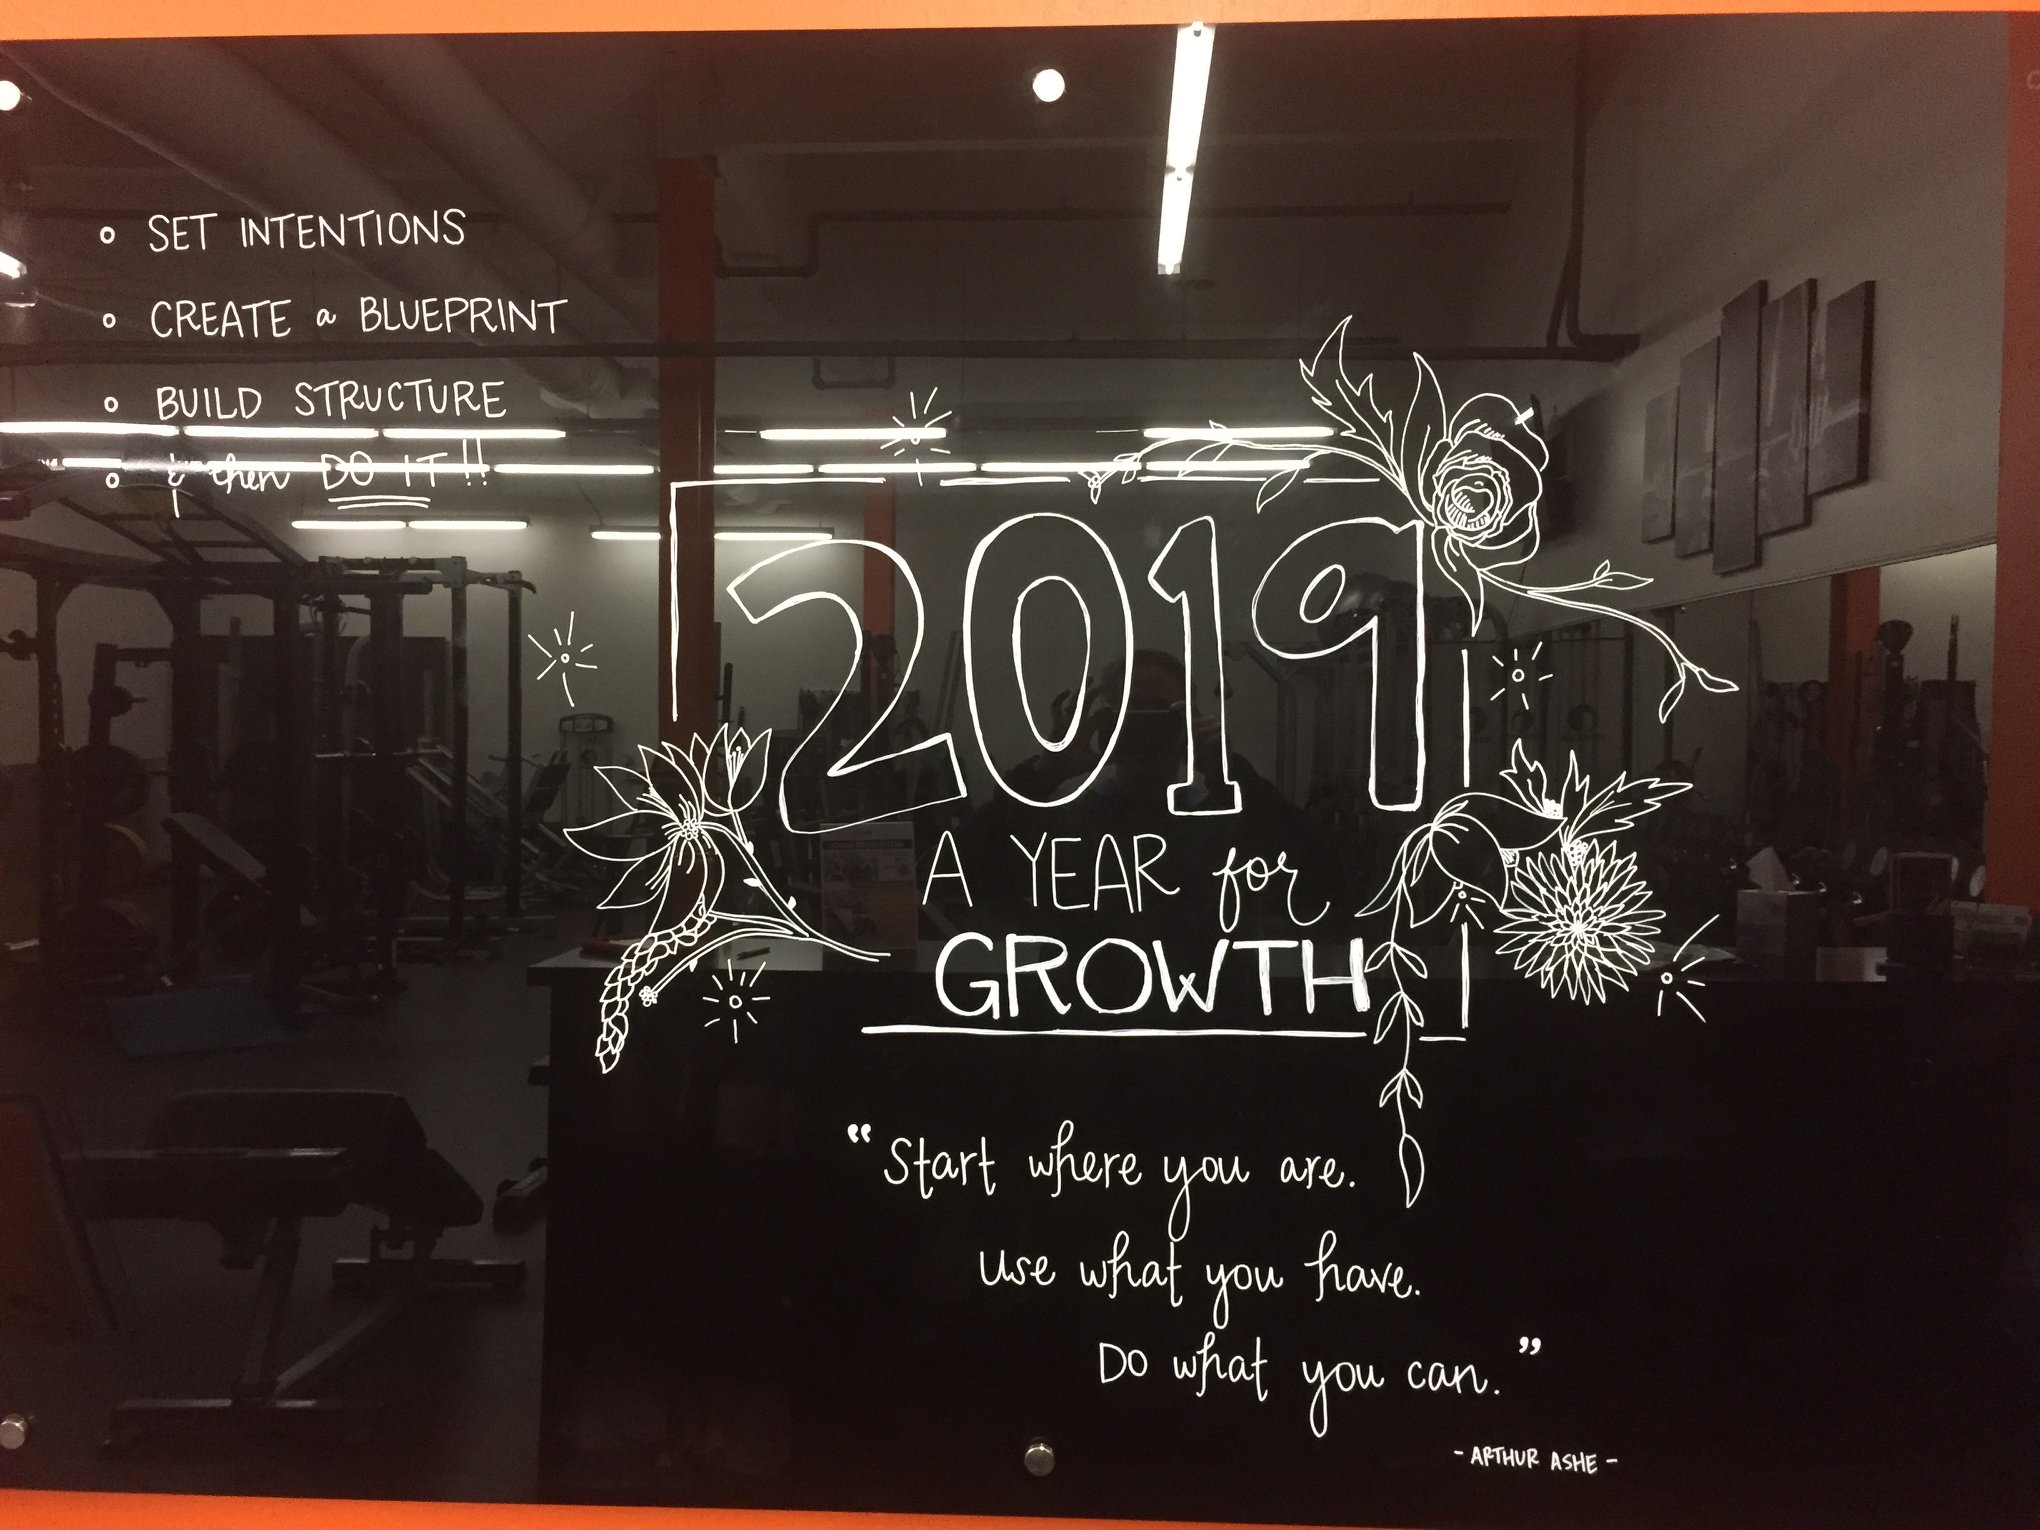 ◦ SET INTENTIONS
◦ CREATE a BLUEPRINT
◦ BUILD STRUCTURE
◦ & then DO IT!!
2019
A YEAR for
GROWTH
“Start where you are.
Use what you have.
Do what you can.”
- ARTHUR ASHE -